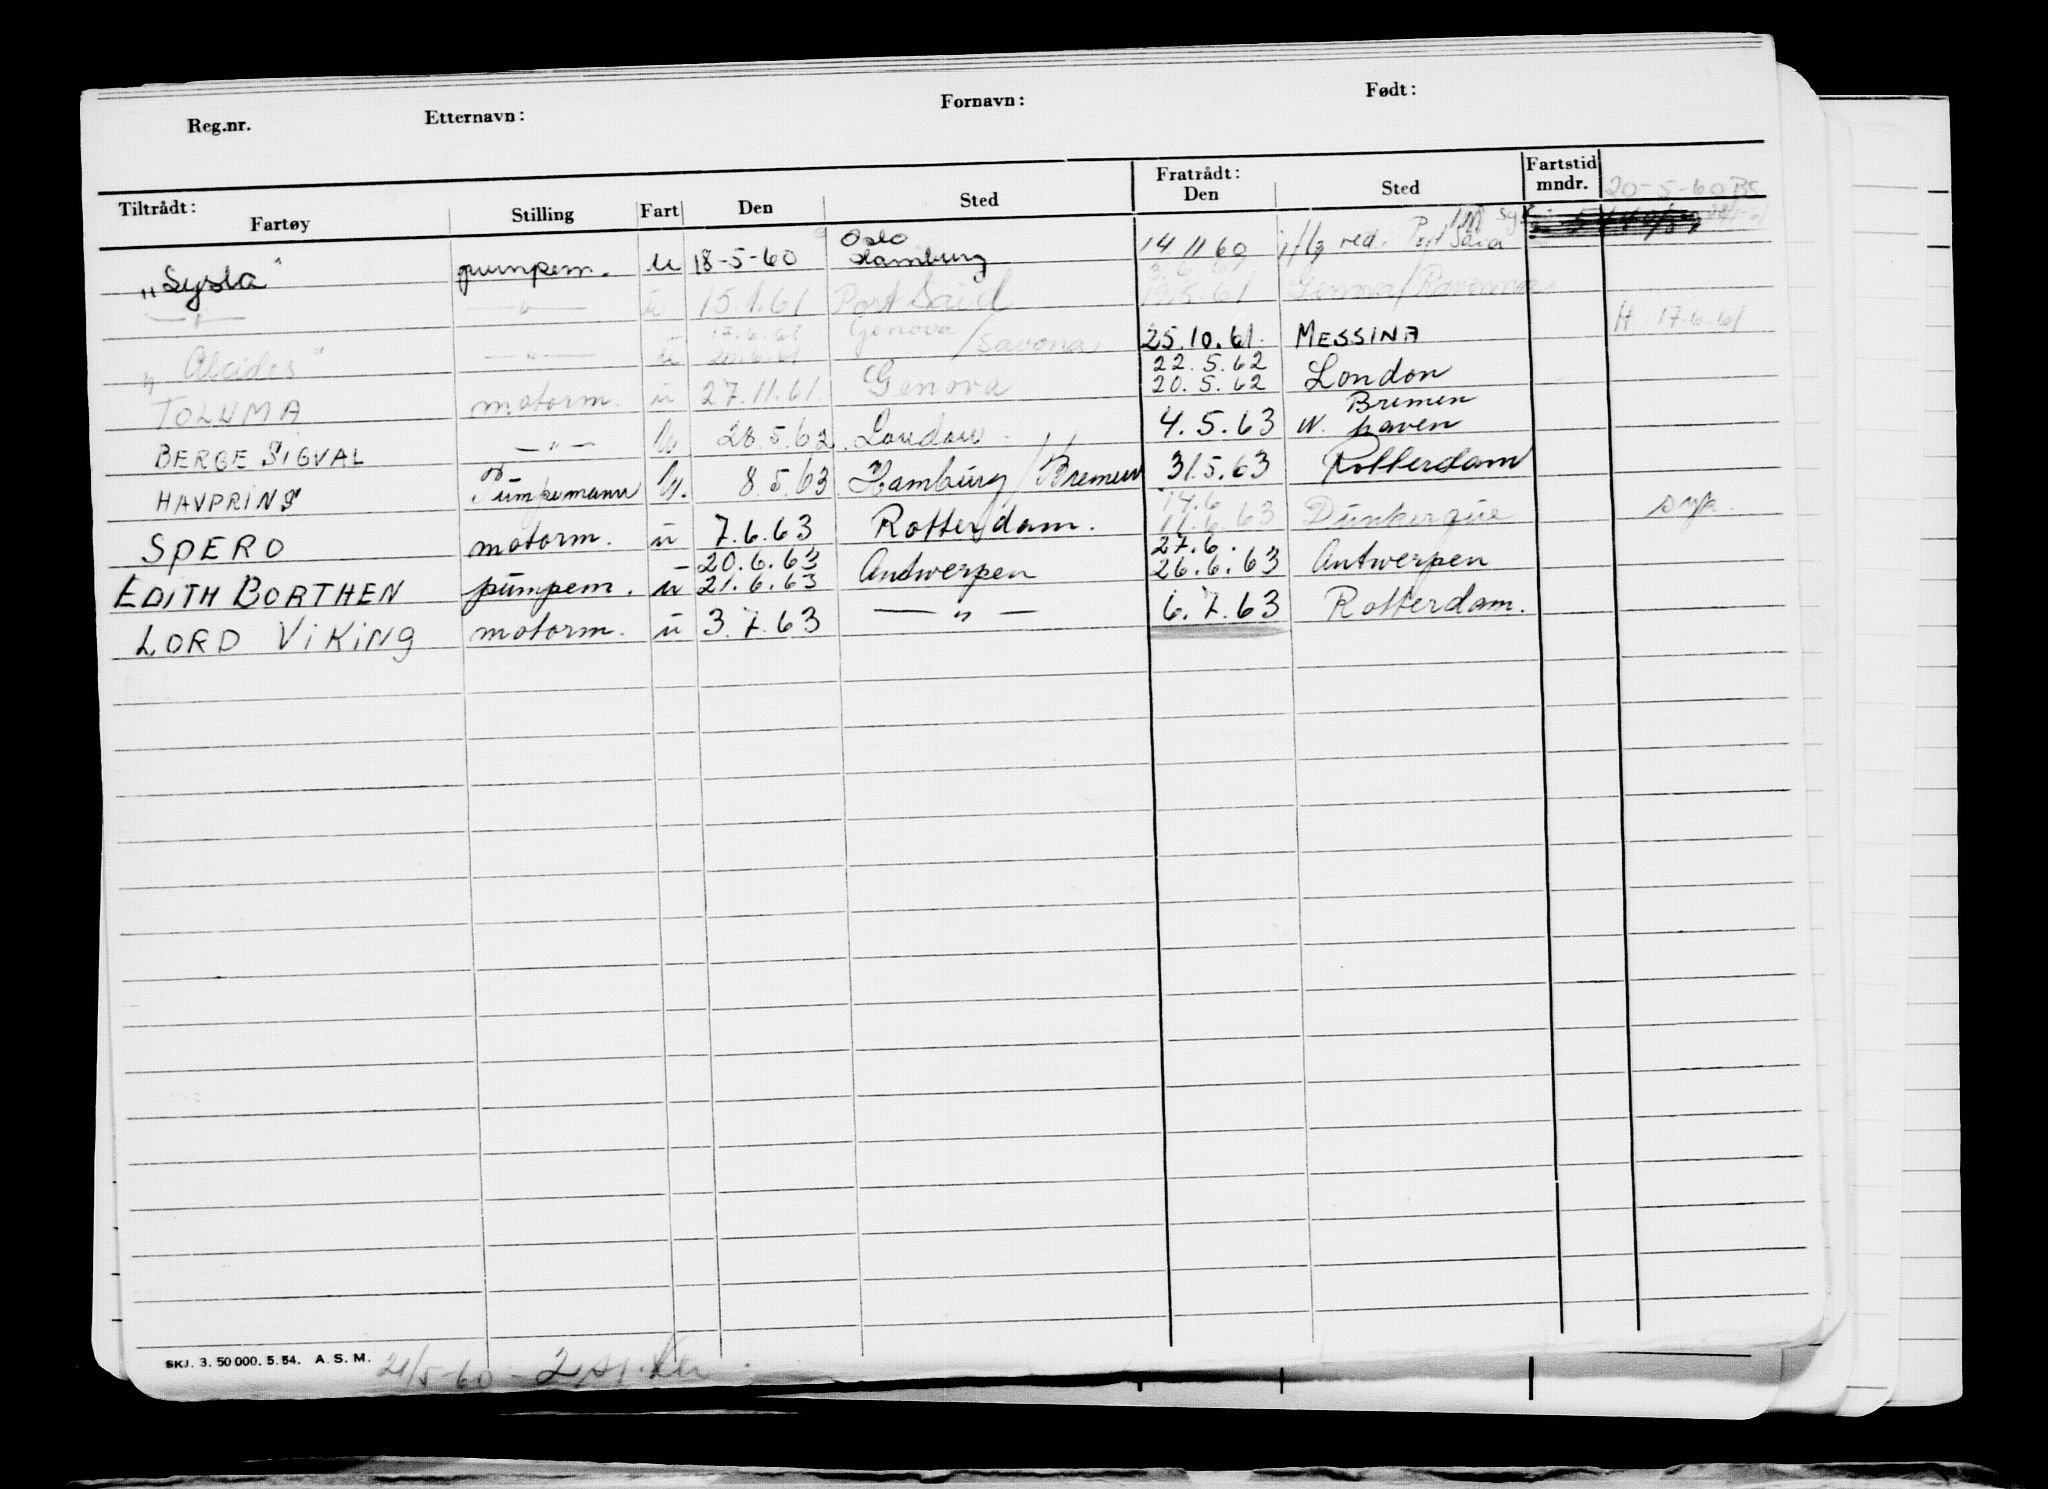 Reg.nr. Etternavn: Fornavn: Født:
Tiltrådt: Fratrådt: Fartstid
Fartøy Stilling Fart Den Sted Den Sted mndr. 20-5-60 BS
„Sysla" pumpem. u 18-5-60 Oslo Hamburg 14 11 60 Port Said
—"— —"— u 15.1.61 Port Said 3.6.61 19.5.61 Genova/Ravenna
„Alcides" —"— u 17.6.61 20.6.61 Genova/Savona 25.10.61. MESSINA H. 17.6.61
TOLUMA motorm. u 27.11.61. Genova 22.5.62 20.5.62 London
BERGE SIGVAL —"— u 28.5.62. London 4.5.63 Bremen haven
HAVPRINS Pumpemann u. 8.5.63 Hamburg/Bremen 31.5.63 Rotterdam
SPERO motorm. u 7.6.63 Rotterdam. 14.6 11.6.63 Dunkerque syk.
EDITH BORTHEN pumpem. u 20.6.63 21.6.63 Antwerpen 27.6. 26.6.63 Antwerpen
LORD ViKiNg motorm. u 3.7.63 —"— 6.7.63 Rotterdam.
SKJ. 3. 50 000. 5. 54. A. S. M. 21/5-60